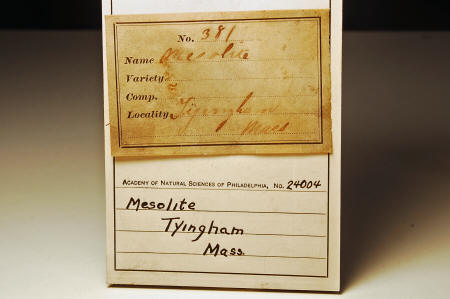 No. 381
Name Mesolite
Variety
Comp.
Locality Tyingham
Mass
ACADEMY OF NATURAL SCIENCES OF PHILADELPHIA, NO. 24004
Mesolite
Tyingham
Mass.